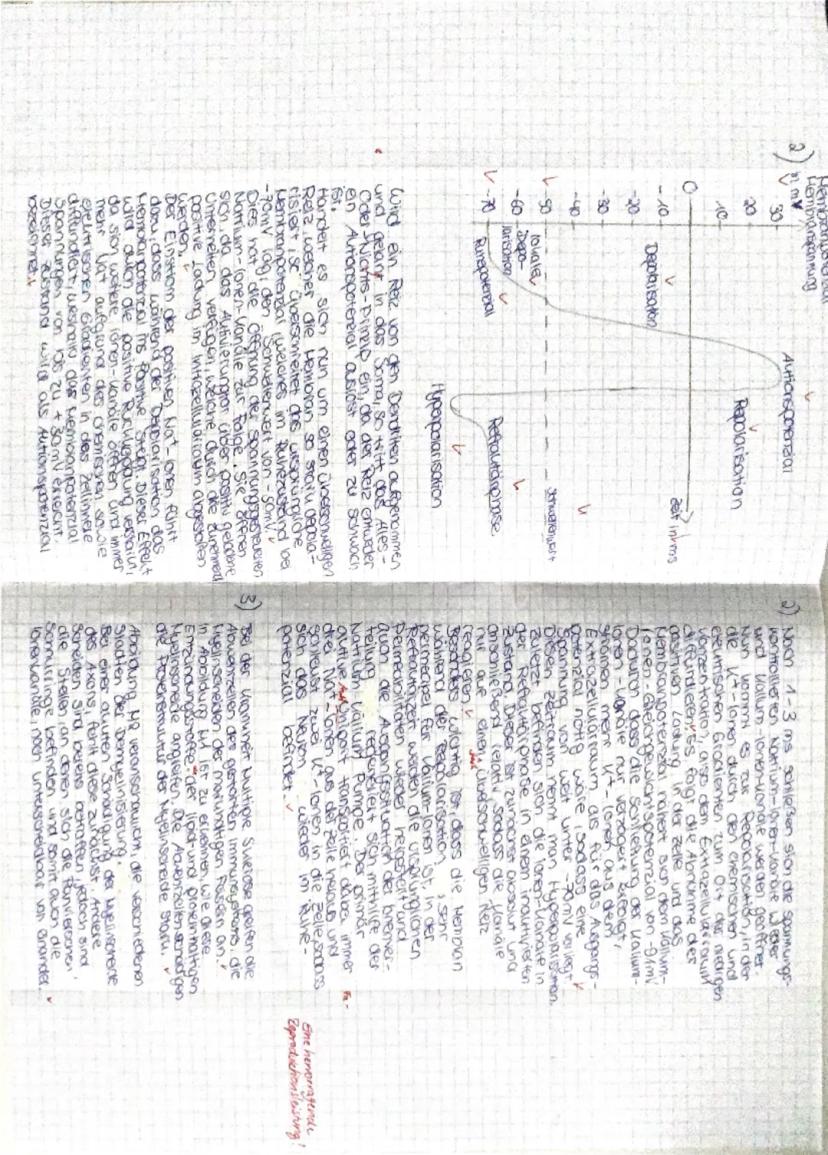 Membranpotenzial
Membranspannung
in mV
2)
30
20
10
0
-10
-20
-30
-40
-50
-60
-70
Aktionspotenzial
Depolarisation
Repolarisation
Zeit in ms
lokale
Depo-
larisation
Schwellenwert
Ruhepotenzial
Refraktärphase
Hyperpolarisation
Wird ein Reiz von den Dendriten aufgenommen
und gelangt in das Soma, so tritt das Alles-
Oder-Nichts-Prinzip ein, da der Reiz entweder
ein Aktionspotenzial auslöst oder zu schwach
ist.
Handelt es sich nun um einen überschwelligen
Reiz, welcher die Membran so stark depola-
risiert, se überschreitet das ursprüngliche
Membranpotenzial (welches im Ruhezustand bei
-70mV lag) den Schwellenwert von -50mV.
Dies hat die Öffnung der spannungsgesteuerten
Natrium-Ionen-Kanäle zur Folge. Sie öffnen
sich, da das Aktivierungstor über positiv geladene
Untereinheiten verfügen, welche durch die zunehmend
positive Ladung im Intrazellulärraum abgestoßen
werden.
Der Einstrom der positiven Na⁺-Ionen führt
dazu, dass während der Depolarisation das
Membranpotenzial ins Positive steigt. Dieser Effekt
wird durch die positive Rückkopplung verstärkt,
da sich weitere Ionen-Kanäle öffnen und immer
mehr Na⁺ aufgrund des chemischen sowie
elektrischen Gradienten in das Zellinnere
diffundieren, weshalb das Membranpotenzial
Spannungen von bis zu +30mV erreicht.
Dieser Zustand wird als Aktionspotenzial
bezeichnet.
2) Nach 1-3 ms schließen sich die spannungs-
kontrollierten Natrium-Ionen-Kanäle wieder
und Kalium-Ionen-Kanäle werden geöffnet.
Nun kommt es zur Repolarisation, in der
die K⁺-Ionen durch den chemischen und
elektrischen Gradienten zum Ort der niedrigen
Konzentration, also dem Extrazellulärraum
diffundieren. Es folgt die Abnahme der
positiven Ladung in der Zelle und das
Membranpotenzial nähert sich dem Kalium-
Ionen-Gleichgewichtspotenzial von -91mV.
Dadurch, dass die Schließung der Kalium-
Ionen-Kanäle nur verzögert erfolgt,
strömen mehr K⁺-Ionen aus dem
Extrazellulärraum als für das Ausgangs-
potenzial nötig wäre, sodass eine
Spannung von weit unter -70mV vorliegt.
Diesen Zeitraum nennt man Hyperpolarisation.
Zuletzt befinden sich die Ionen-Kanäle in
der Refraktärphase in einem inaktivierten
Zustand. Dieser ist zunächst absolut und
anschließend relativ, sodass die Kanäle
nur auf einen überschwelligen Reiz
reagieren.
Besonders wichtig ist, dass die Membran
während der Repolarisation sehr
permeabel für Kalium-Ionen ist. In der
Refraktärzeit werden die ursprünglichen
Permeabilitäten wieder hergestellt und
auch die Ausgangssituation der Ionenver-
teilung regeneriert sich mithilfe der
Natrium Kalium Pumpe. Der primär
aktive Transport transportiert dabei immer
drei Na⁺-Ionen aus der Zelle hinaus und
schleust zwei K⁺-Ionen in die Zelle, sodass
sich das Neuron wieder im Ruhe-
potenzial befindet.
Eine hervorragende
Reproduktionsleistung!
3) Bei der Krankheit Multiple Sklerose greifen die
Abwehrzellen des gestörten Immunsystems die
Myelinscheiden der markhaltigen Fasern an.
In Abbildung M1 ist zu erkennen, wie diese
Entzündungsstoffe der lipid und proteinhaltigen
Myelinscheide angreifen. Die Abwehrzellen schädigen
die Proteinstruktur der Myelinscheide stark.
Abbildung M2 veranschaulicht die verschiedenen
Stadien der Demyelinisierung.
Bei einer akuten Schädigung der Myelinscheide
des Axons, fehlt diese zunächst. Andere
Scheiden sind bereits betroffen, jedoch sind
die Stellen an denen sich die Ranvierschen
Schnürringe befinden und somit auch die
Ionenkanäle, noch unterscheidbar von einander.